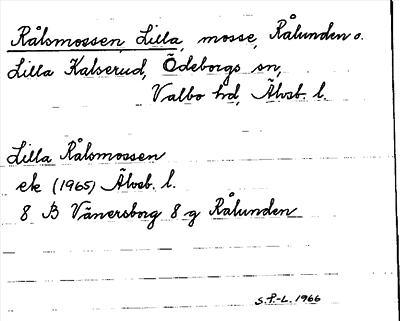 Rålsmossen Lilla, mosse, Rålunden o.
Lilla Kalserud, Ödeborgs sn,
Valbo hd, Älvsb. l.
Lilla Rålsmossen
ek (1965) Älvsb. l.
8 B Vänersborg 8 g Rålunden
S.F-L. 1966